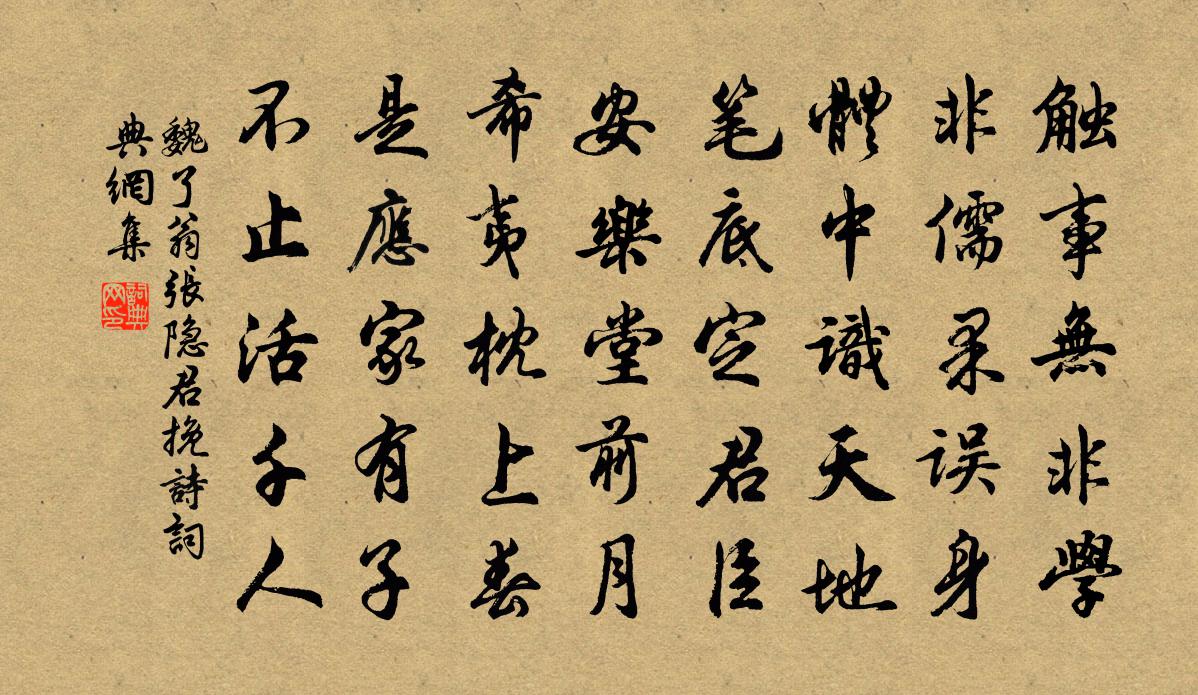 触事無非學
非儒柔误身
體中識天地
笔底定君臣
安樂堂前月
希夷枕上春
是應家有子
不止活千人
魏了翁張隐君挽詩詞
典網集
詞典
网印